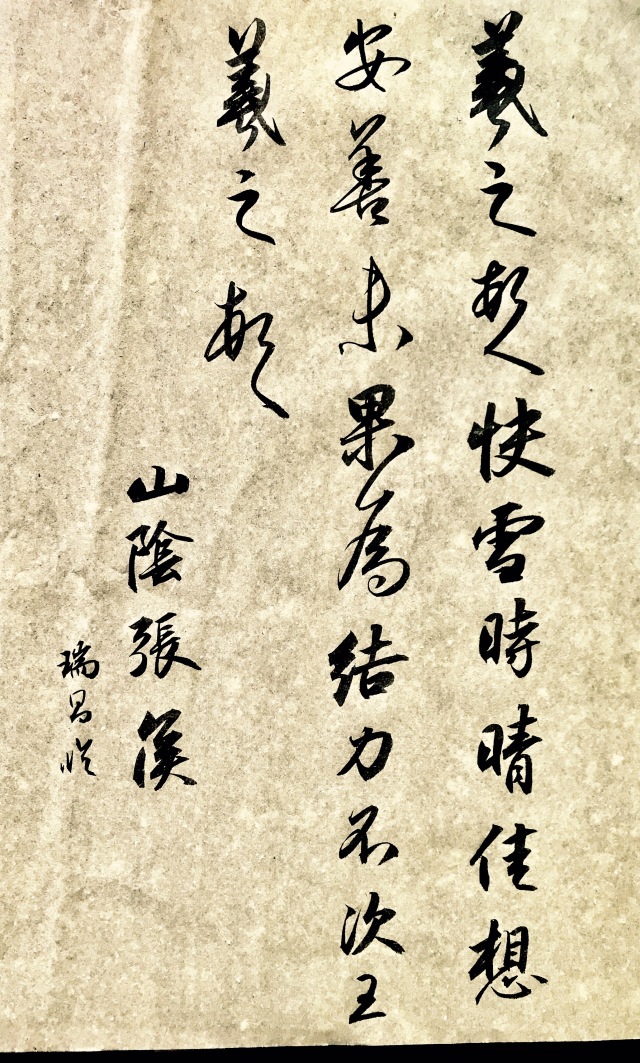 羲之頓首快雪時晴佳想
安善未果為結力不次王
羲之頓首
山陰張侯
瑞昌臨